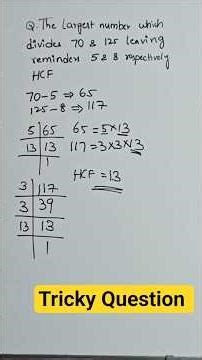 Q. The largest number which
divides 70 & 125 leaving
remainder 5 & 8 respectively
HCF
70-5 ⇒ 65
125-8 ⇒ 117
5 | 65
13 | 13
1
65 = 5×13
117 = 3×3×13
HCF = 13
3 | 117
3 | 39
13 | 13
1
Tricky Question